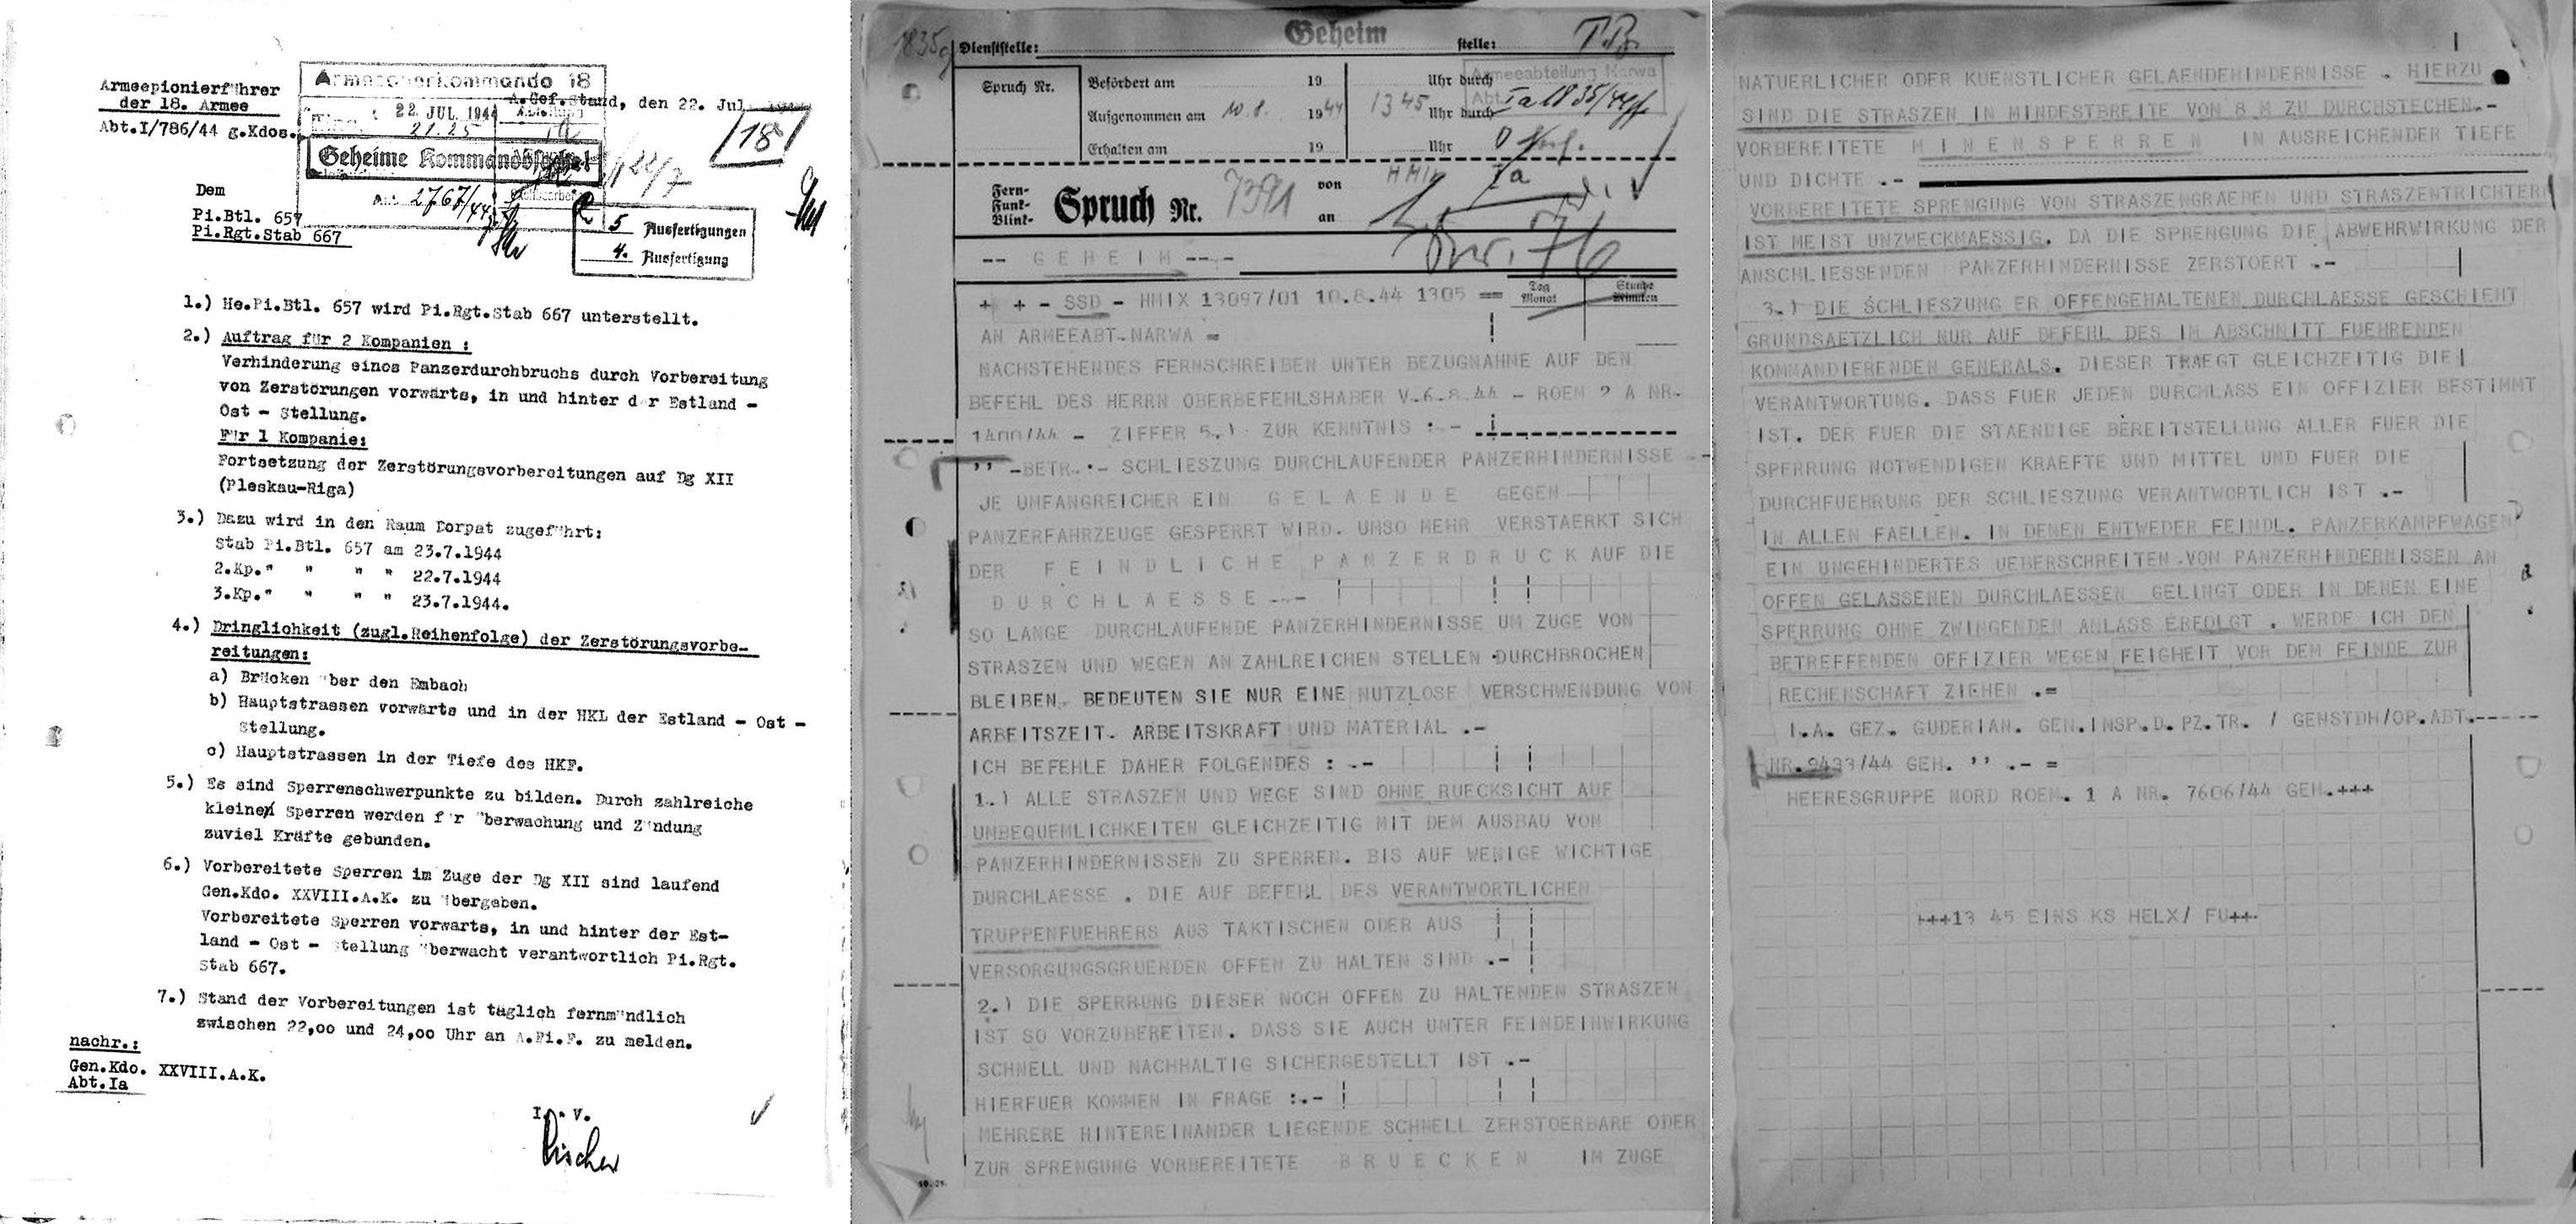 Armeepionierführer
der 18. Armee
Abt.I/786/44 g.Kdos.
Armeeoberkommando 18
A.Gef.Stand, den 22. Jul
22. JUL. 1944
21.25
18
Geheime Kommandosache!
22/7
2767/44
5 Ausfertigungen
4. Ausfertigung
Dem
Pi.Btl. 657
Pi.Rgt.Stab 667
1.) He.Pi.Btl. 657 wird Pi.Rgt.Stab 667 unterstellt.
2.) Auftrag für 2 Kompanien :
Verhinderung eines Panzerdurchbruchs durch Vorbereitung
von Zerstörungen vorwärts, in und hinter der Estland -
Ost - Stellung.
Für 1 Kompanie:
Fortsetzung der Zerstörungsvorbereitungen auf Dg XII
(Pleskau-Riga)
3.) Dazu wird in den Raum Dorpat zugeführt:
Stab Pi.Btl. 657 am 23.7.1944
2.Kp." " " " 22.7.1944
3.Kp." " " " 23.7.1944.
4.) Dringlichkeit (zugl.Reihenfolge) der Zerstörungsvorbe-
reitungen:
a) Brücken über den Embach
b) Hauptstrassen vorwärts und in der HKL der Estland - Ost -
Stellung.
c) Hauptstrassen in der Tiefe des HKF.
5.) Es sind Sperrenschwerpunkte zu bilden. Durch zahlreiche
kleinen Sperren werden für Überwachung und Zündung
zuviel Kräfte gebunden.
6.) Vorbereitete Sperren im Zuge der Dg XII sind laufend
Gen.Kdo. XXVIII.A.K. zu übergeben.
Vorbereitete Sperren vorwärts, in und hinter der Est-
land - Ost - Stellung überwacht verantwortlich Pi.Rgt.
Stab 667.
7.) Stand der Vorbereitungen ist täglich fernmündlich
zwischen 22,00 und 24,00 Uhr an A.Pi.F. zu melden.
nachr.:
Gen.Kdo. XXVIII.A.K.
Abt.Ia
I. V.
1835g
Geheim
Dienststelle: stelle:
Spruch Nr.
Befördert am 19 Uhr durch
Aufgenommen am 10.8. 1944 1345 Uhr durch
Erhalten am 19 Uhr
Armeeabteilung Narwa
Abt. Ia 1835/44 g
Fern-
Funk-
Blink-
Spruch Nr. 7391 von HMIX
an
Ia
-- G E H E I M --.-
+ + - SSD - HMIX 13097/01 10.8.44 1305 ==
Tag
Monat
Stunde
Minuten
AN ARMEEABT.NARWA =
NACHSTEHENDES FERNSCHREIBEN UNTER BEZUGNAHME AUF DEN
BEFEHL DES HERRN OBERBEFEHLSHABER V.6.8.44 - ROEM 2 A NR.
1400/44 - ZIFFER 5.) ZUR KENNTNIS : -
'' -BETR.:- SCHLIESZUNG DURCHLAUFENDER PANZERHINDERNISSE .-
JE UMFANGREICHER EIN G E L A E N D E GEGEN
PANZERFAHRZEUGE GESPERRT WIRD. UMSO MEHR VERSTAERKT SICH
DER F E I N D L I C H E P A N Z E R D R U C K AUF DIE
D U R C H L A E S S E .-
SO LANGE DURCHLAUFENDE PANZERHINDERNISSE UM ZUGE VON
STRASZEN UND WEGEN AN ZAHLREICHEN STELLEN DURCHBROCHEN
BLEIBEN. BEDEUTEN SIE NUR EINE NUTZLOSE VERSCHWENDUNG VON
ARBEITSZEIT. ARBEITSKRAFT UND MATERIAL .-
ICH BEFEHLE DAHER FOLGENDES : .-
1.) ALLE STRASZEN UND WEGE SIND OHNE RUECKSICHT AUF
UMBEQUEMLICHKEITEN GLEICHZEITIG MIT DEM AUSBAU VON
PANZERHINDERNISSEN ZU SPERREN. BIS AUF WENIGE WICHTIGE
DURCHLAESSE . DIE AUF BEFEHL DES VERANTWORTLICHEN
TRUPPENFUEHRERS AUS TAKTISCHEN ODER AUS
VERSORGUNGSGRUENDEN OFFEN ZU HALTEN SIND .-
2.) DIE SPERRUNG DIESER NOCH OFFEN ZU HALTENDEN STRASZEN
IST SO VORZUBEREITEN. DASS SIE AUCH UNTER FEINDEINWIRKUNG
SCHNELL UND NACHHALTIG SICHERGESTELLT IST .-
HIERFUER KOMMEN IN FRAGE :.-
MEHRERE HINTEREINANDER LIEGENDE SCHNELL ZERSTOERBARE ODER
ZUR SPRENGUNG VORBEREITETE B R U E C K E N IM ZUGE
NATUERLICHER ODER KUENSTLICHER GELAENDEHINDERNISSE . HIERZU
SIND DIE STRASZEN IN MINDESTBREITE VON 8 M ZU DURCHSTECHEN.-
VORBEREITETE M I N E N S P E R R E N IN AUSREICHENDER TIEFE
UND DICHTE .-
VORBEREITETE SPRENGUNG VON STRASZENGRAEBEN UND STRASZENTRICHTERN
IST MEIST UNZWECKMAESSIG. DA DIE SPRENGUNG DIE ABWEHRWIRKUNG DER
ANSCHLIESSENDEN PANZERHINDERNISSE ZERSTOERT .-
3.) DIE SCHLIESZUNG ER OFFENGEHALTENEN DURCHLAESSE GESCHIEHT
GRUNDSAETZLICH NUR AUF BEFEHL DES IM ABSCHNITT FUEHRENDEN
KOMMANDIERENDEN GENERALS. DIESER TRAEGT GLEICHZEITIG DIE
VERANTWORTUNG. DASS FUER JEDEN DURCHLASS EIN OFFIZIER BESTIMMT
IST. DER FUER DIE STAENDIGE BEREITSTELLUNG ALLER FUER DIE
SPERRUNG NOTWENDIGEN KRAEFTE UND MITTEL UND FUER DIE
DURCHFUEHRUNG DER SCHLIESZUNG VERANTWORTLICH IST .-
IN ALLEN FAELLEN. IN DENEN ENTWEDER FEINDL. PANZERKAMPFWAGEN
EIN UNGEHINDERTES UEBERSCHREITEN VON PANZERHINDERNISSEN AN
OFFEN GELASSENEN DURCHLAESSEN GELINGT ODER IN DENEN EINE
SPERRUNG OHNE ZWINGENDEN ANLASS ERFOLGT . WERDE ICH DEN
BETREFFENDEN OFFIZIER WEGEN FEIGHEIT VOR DEM FEINDE ZUR
RECHENSCHAFT ZIEHEN .=
I.A. GEZ. GUDERIAN. GEN.INSP.D.PZ.TR. / GENSTDH/OP.ABT.-
NR.9433/44 GEH. '' .- =
HEERESGRUPPE NORD ROEM. 1 A NR. 7606/44 GEH.+++
+++13 45 EINS KS HELX/ FU++